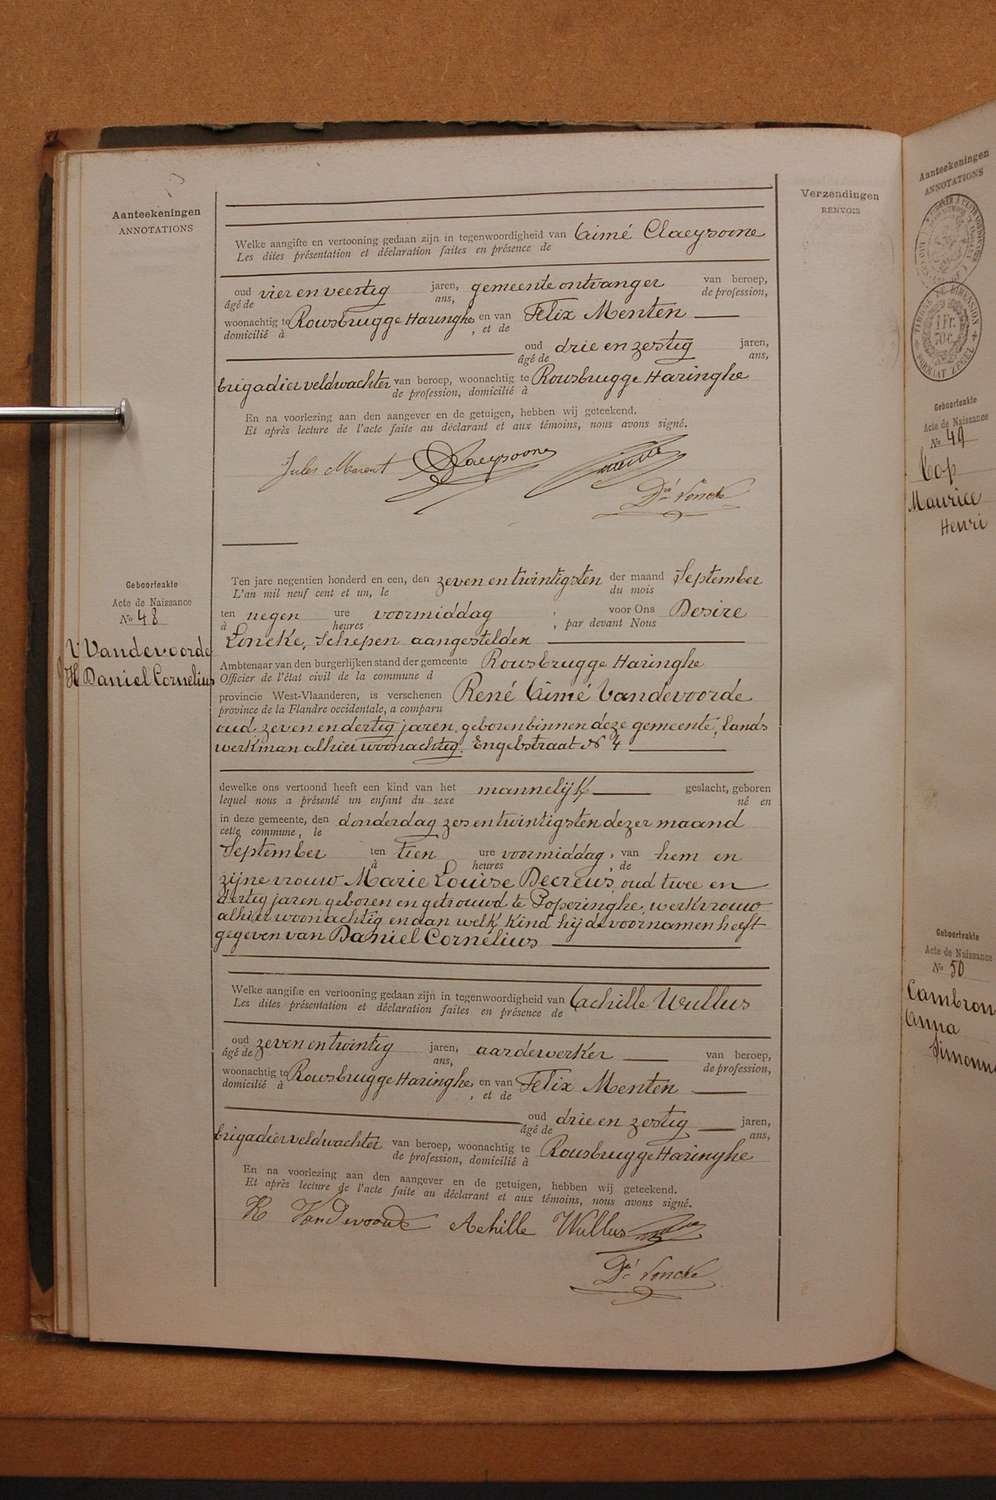 Aanteekeningen
ANNOTATIONS
Verzendingen
RENVOIS
Welke aangifte en vertooning gedaan zijn in tegenwoordigheid van Aimé Claeysoone
Les dites présentation et déclaration faites en présence de
oud vier en veertig jaren, gemeente ontvanger van beroep,
âgé de ans, de profession,
woonachtig te Rousbrugge Haringhe en van Felix Menten
domicilié à , et de
oud drie en zestig jaren,
âgé de ans,
brigadier veldwachter van beroep, woonachtig te Rousbrugge Haringhe
de profession, domicilié à
En na voorlezing aan den aangever en de getuigen, hebben wij geteekend.
Et après lecture de l'acte faite au déclarant et aux témoins, nous avons signé.
Jules Claeysoone
Dré Loncke
Geboorteakte
Acte de Naissance
No 48
Vandevoorde
Daniel Cornelius
Ten jare negentien honderd en een, den zeven en twintigsten der maand September
L'an mil neuf cent et un, le du mois
ten negen ure voormiddag , voor Ons Desiré
à heures , par devant Nous
Loncke, Schepen aangestelden
Ambtenaar van den burgerlijken stand der gemeente Rousbrugge Haringhe
Officier de l'état civil de la commune d
provincie West-Vlaanderen, is verschenen René Aimé Vandevoorde
province de la Flandre occidentale, a comparu
oud zeven en dertig jaren, geboren binnen deze gemeente, lands
werkman alhier woonachtig. Engelstraat No 4
dewelke ons vertoond heeft een kind van het mannelijk geslacht, geboren
lequel nous a présenté un enfant du sexe né en
in deze gemeente, den donderdag zes en twintigsten dezer maand
cette commune, le
September ten tien ure voormiddag, van hem en
à heures , de
zijne vrouw Marie Louise Decreus, oud twee en
dertig jaren geboren en getrouwd te Poperinghe, werkvrouw
alhier woonachtig en aan welk kind hij de voornamen heeft
gegeven van Daniel Cornélius
Welke aangifte en vertooning gedaan zijn in tegenwoordigheid van Achille Wullus
Les dites présentation et déclaration faites en présence de
oud zeven en twintig jaren, aardewerker van beroep,
âgé de ans, de profession,
woonachtig te Rousbrugge Haringhe en van Felix Menten
domicilié à , et de
oud drie en zestig jaren,
âgé de ans,
brigadier veldwachter van beroep, woonachtig te Rousbrugge Haringhe
de profession, domicilié à
En na voorlezing aan den aangever en de getuigen, hebben wij geteekend.
Et après lecture de l'acte faite au déclarant et aux témoins, nous avons signé.
R Vandevoorde Achille Wullus
Dré Loncke
Aanteekeningen
ANNOTATIONS
1 Fr.
Geboorteakte
Acte de Naissance
No 49
Cop
Maurice
Henri
Geboorteakte
Acte de Naissance
No 50
Cambron
Anna